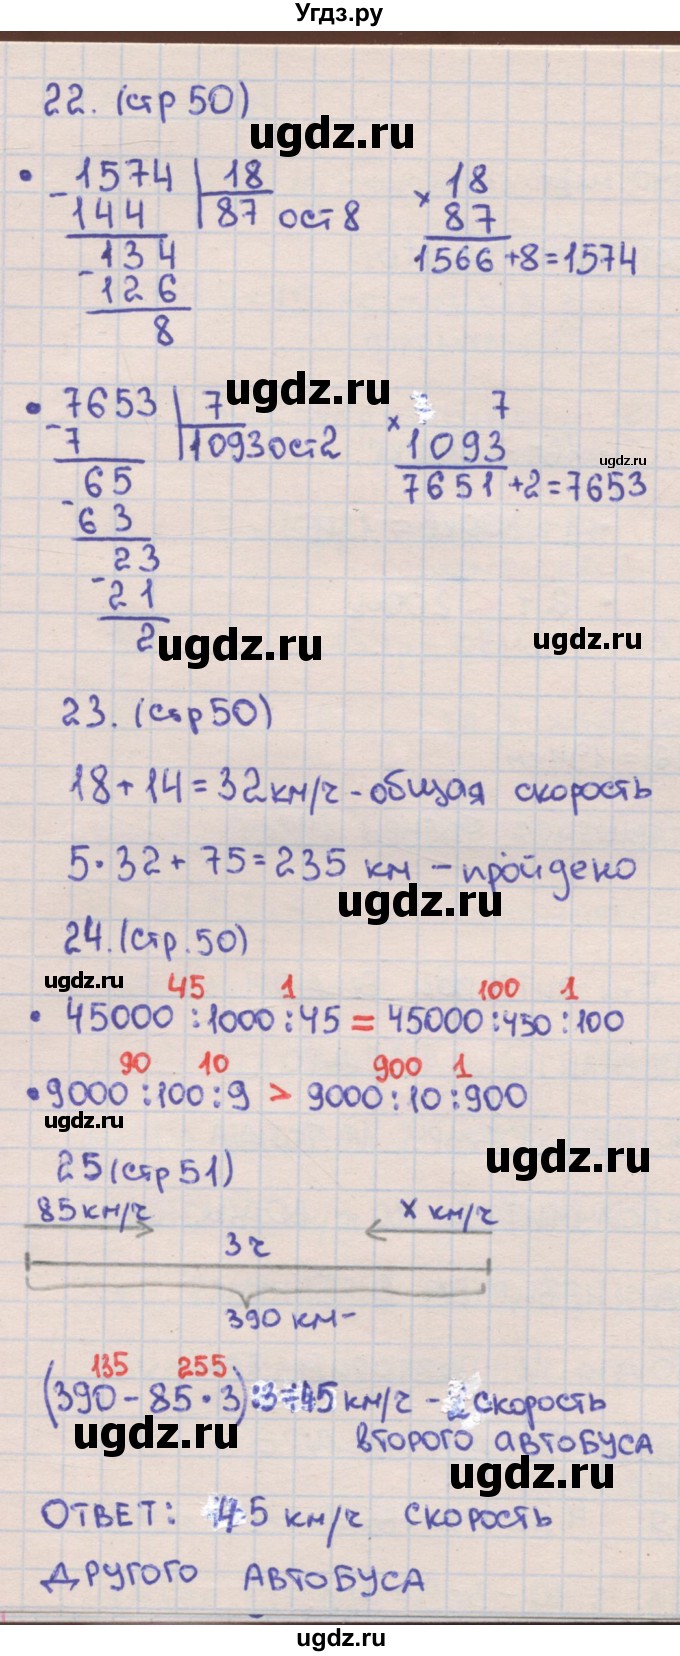 Угдз.ру
22. (стр 50)
ugdz.ru
- 1574 | 18
144 87 ост 8
- 134
126
8
× 18
87
1566 +8=1574
ugdz.ru
- 7653 | 7
7 1093 ост 2
65
- 63
23
- 21
2
× 7
1093
7651 +2=7653
ugdz.ru
ugdz.ru
ugdz.ru
23. (стр 50)
18+14=32 км/ч - общая скорость
5·32+75=235 км - пройдено
ugdz.ru
24. (стр. 50)
ugdz.ru
45 1 100 1
• 45000 : 1000 : 45 = 45000 : 450 : 100
90 10 900 1
• 9000 : 100 : 9 > 9000 : 10 : 900
ugdz.ru
ugdz.ru
25 (стр 51)
85 км/ч x км/ч
3 ч
390 км
135 255
(390 - 85 · 3) : 3 = 45 км/ч - скорость
второго автобуса
ugdz.ru
ugdz.ru
Ответ: 45 км/ч скорость
другого автобуса
ugdz.ru